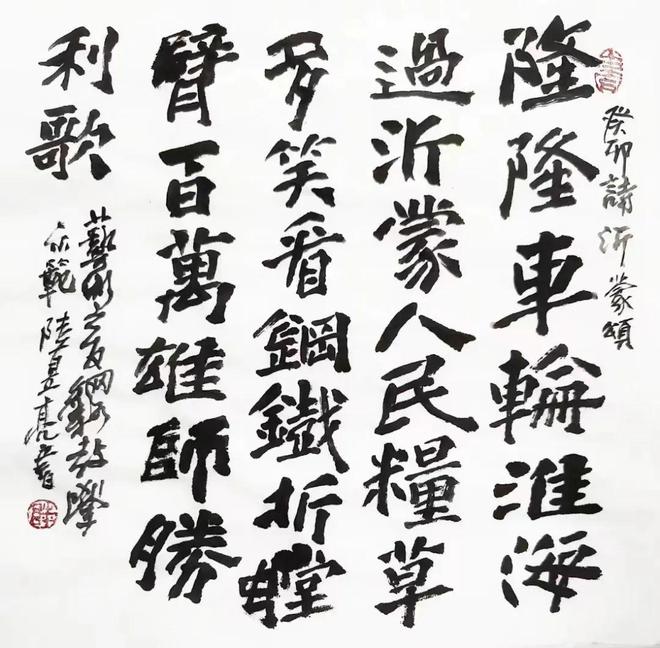 癸卯詩沂蒙頌
隆隆車輪淮海
過沂蒙人民糧草
多笑看鋼鐵折螳
臂百萬雄師勝
利歌
藝術之友網絡教學
示範 陸亮書